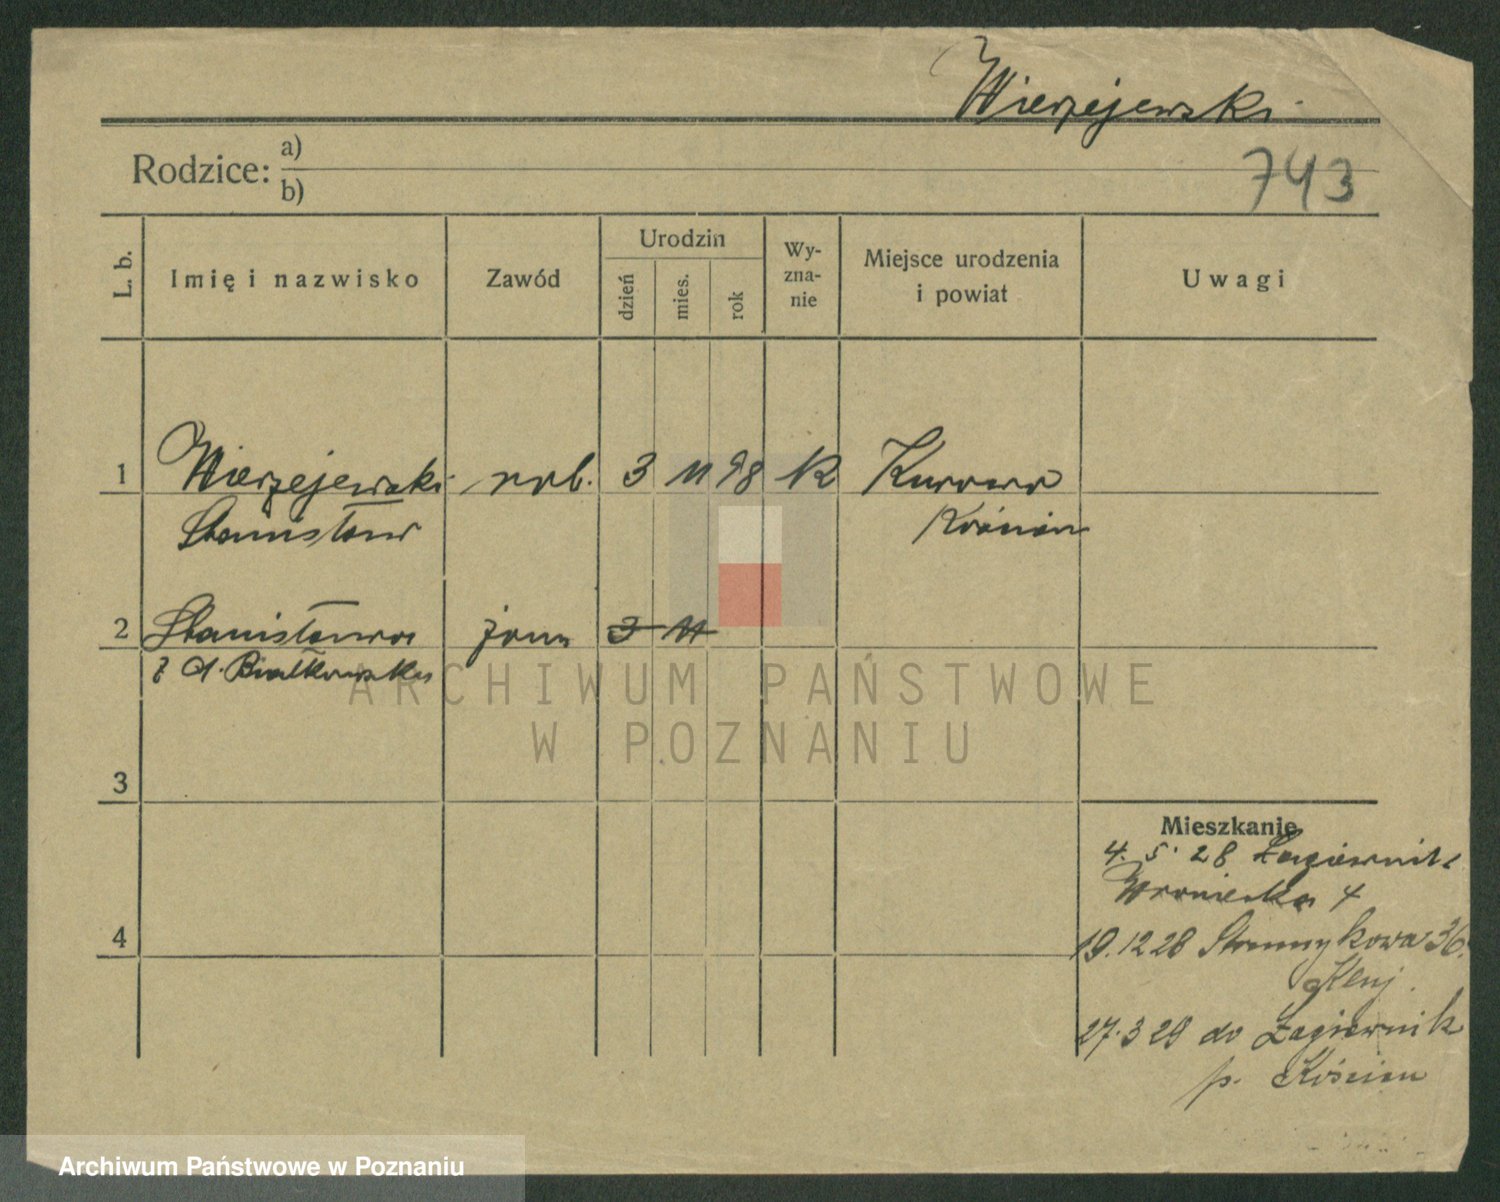 Wierzejewski
Rodzice: a)
b)
743
L. b.
Imię i nazwisko
Zawód
Urodzin
dzień
mies.
rok
Wy-
zna-
nie
Miejsce urodzenia
i powiat
Uwagi
1 Wierzejewski rob. 3 11 98 K Kurowo
Stanisław Kościan
2 Stanisława żona 3 11
z d. Białkowska
ARCHIWUM PAŃSTWOWE
W POZNANIU
3
Mieszkanie
4. 5. 28 Łagiewnik
Wroniecka 4
4
19.12 28 Strumykowa 36
27.3 29 do Łagiewnik
p. Kościan
Archiwum Państwowe w Poznaniu